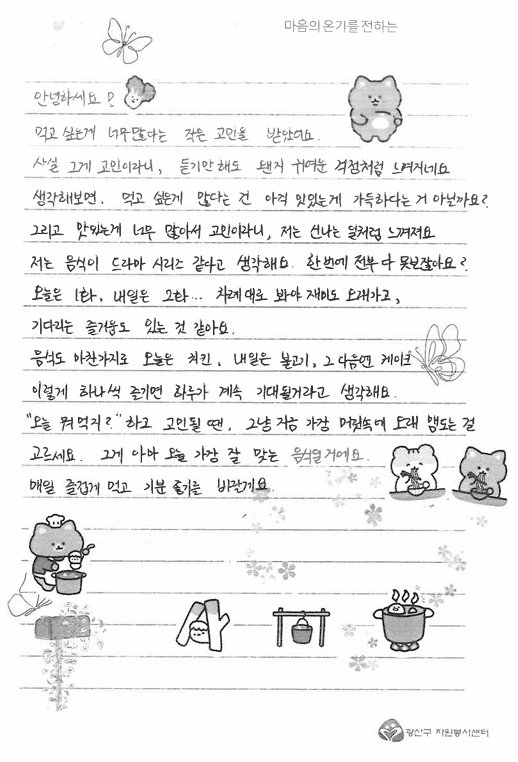 마음의 온기를 전하는
안녕하세요?
먹고 싶은게 너무많다는 작은 고민을 받았어요.
사실 그게 고민이라니, 듣기만 해도 왠지 귀여운 걱정처럼 느껴지네요
생각해보면, 먹고 싶은게 많다는 건 아직 맛있는게 가득하다는 거 아닐까요?
그리고 맛있는게 너무 많아서 고민이라니, 저는 신나는 일처럼 느껴져요
저는 음식이 드라마 시리즈 같다고 생각해요. 한번에 전부 다 못보잖아요?
오늘은 1화, 내일은 2화... 차례대로 봐야 재미도 오래가고,
기다리는 즐거움도 있는 것 같아요.
음식도 마찬가지로 오늘은 치킨, 내일은 불고기, 그 다음엔 케이크
이렇게 하나씩 즐기면 하루가 계속 기대될거라고 생각해요.
"오늘 뭐먹지?" 하고 고민될 땐, 그냥 지금 가장 머릿속에 오래 맴도는 걸
고르세요. 그게 아마 오늘 가장 잘 맞는 음식일거에요.
매일 즐겁게 먹고 기분 좋기를 바랄게요.
광산구 자원봉사센터